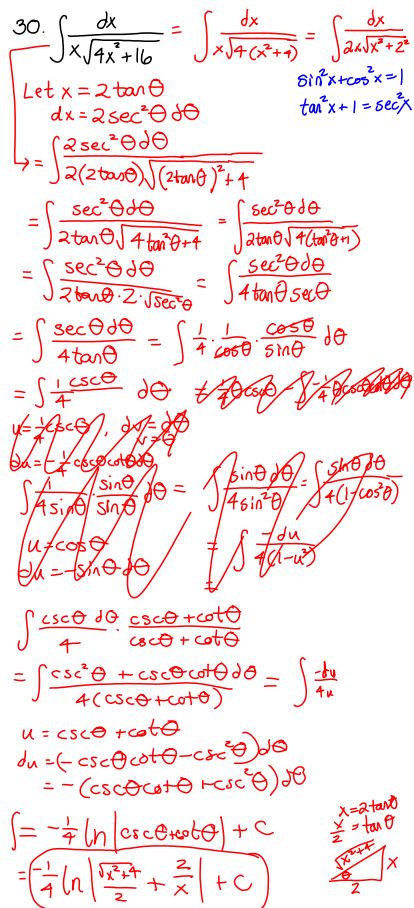 30. ∫ dx / x√(4x²+16) = ∫ dx / x√(4(x²+4)) = ∫ dx / 2x√(x²+2²)
sin²x+cos²x=1
tan²x+1=sec²x
Let x = 2tanθ
dx = 2sec²θ dθ
= ∫ 2sec²θdθ / 2(2tanθ)√((2tanθ)²+4)
= ∫ sec²θdθ / 2tanθ√(4tan²θ+4) = ∫ sec²θdθ / 2tanθ√(4(tan²θ+1))
= ∫ sec²θdθ / 2tanθ·2·√sec²θ = ∫ sec²θdθ / 4tanθ secθ
= ∫ secθdθ / 4tanθ = ∫ 1/4 · 1/cosθ · cosθ/sinθ dθ
= ∫ 1/4 cscθ dθ = 1/4 θcscθ - ∫ -1/4 θcscθcotθdθ
u = 1/4 cscθ, dv = dθ
v = θ
du = -1/4 cscθcotθdθ
∫ 1/4sinθ · sinθ/sinθ dθ = ∫ sinθdθ / 4sin²θ = ∫ sinθdθ / 4(1-cos²θ)
u = cosθ
du = -sinθdθ
= ∫ -du / 4(1-u²)
=
∫ cscθ dθ / 4 · cscθ+cotθ / cscθ+cotθ
= ∫ csc²θ + cscθcotθdθ / 4(cscθ+cotθ) = ∫ -du/4u
u = cscθ + cotθ
du = (-cscθcotθ - csc²θ)dθ
= -(cscθcotθ + csc²θ)dθ
∫ = -1/4 ln|cscθ+cotθ| + C
= -1/4 ln|√(x²+4)/2 + 2/x| + C
x = 2tanθ
x/2 = tanθ
√(x²+4)
θ
x
2